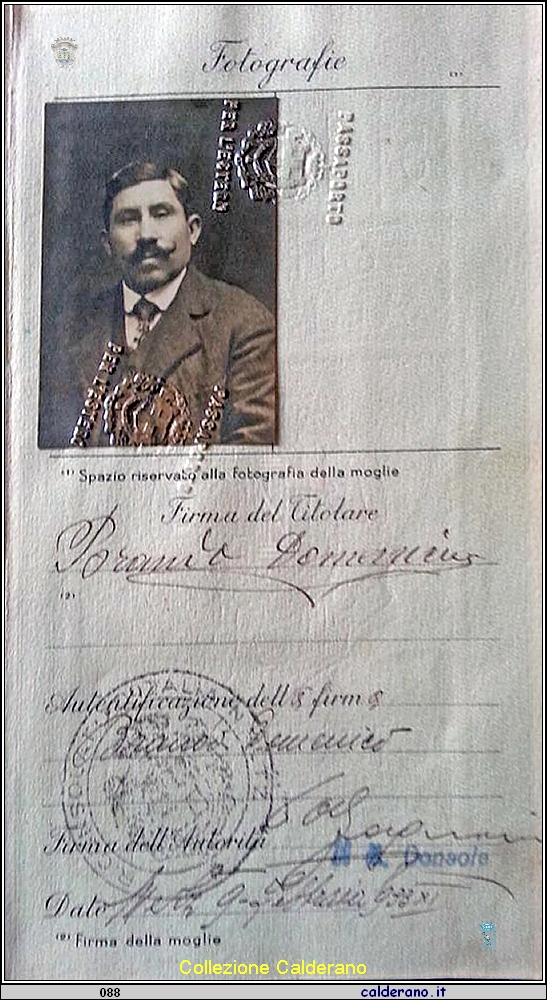 Fotografie
(1)
PASSAPORTO
PER L'ESTERO
PER L'ESTERO
(1) Spazio riservato alla fotografia della moglie
Firma del Titolare
Brando Domenico
(2)
Autentificazione dell firm
Brando Domenico
Firma dell'Autorità
Console
Dato Metz 9
(2) Firma della moglie
Collezione Calderano
088
calderano.it